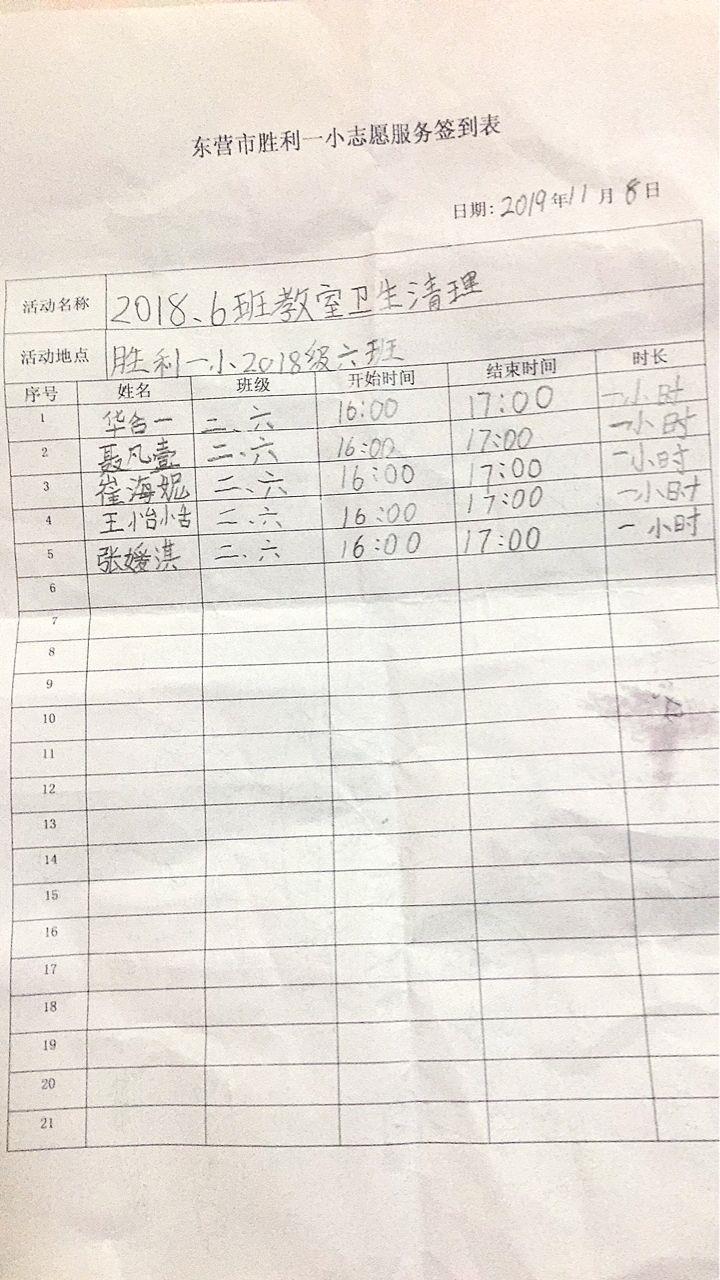 东营市胜利一小志愿服务签到表
日期: 2019年11月8日
活动名称 2018、6班教室卫生清理
活动地点 胜利一小2018级六班
序号 姓名 班级 开始时间 结束时间 时长
1 华合一 二、六 16:00 17:00 一小时
2 聂凡壹 二、六 16:00 17:00 一小时
3 崔海妮 二、六 16:00 17:00 一小时
4 王怡恬 二、六 16:00 17:00 一小时
5 张媛淇 二、六 16:00 17:00 一小时
6
7
8
9
10
11
12
13
14
15
16
17
18
19
20
21